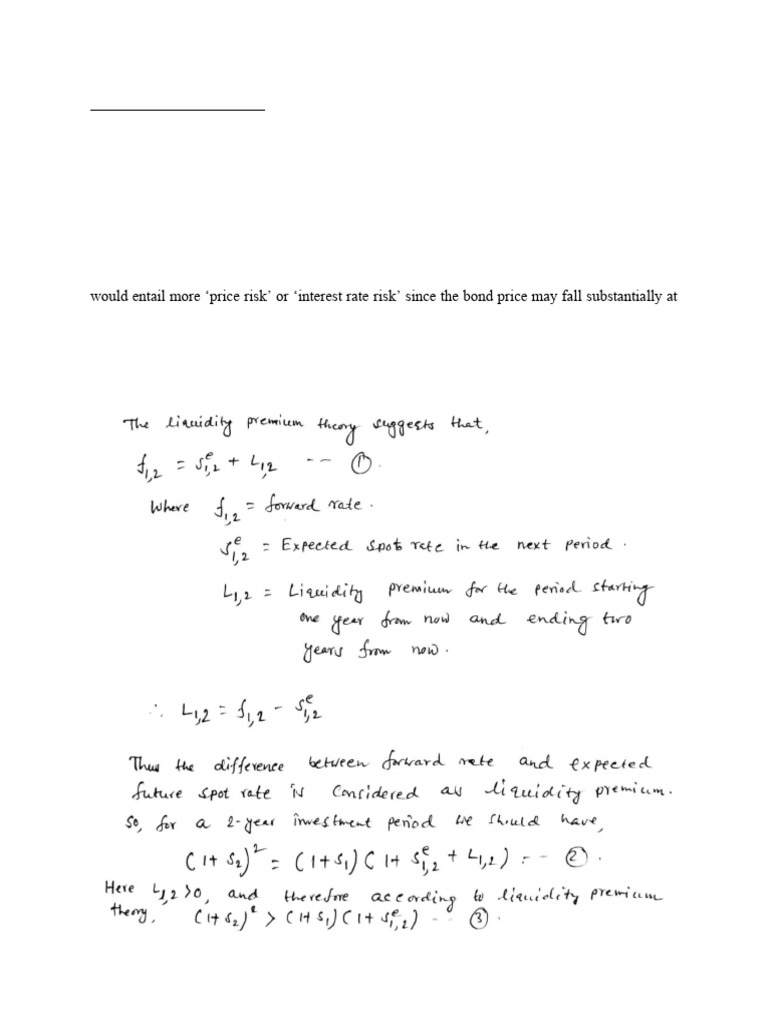 would entail more ‘price risk’ or ‘interest rate risk’ since the bond price may fall substantially at
The liquidity premium theory suggests that,
f1,2 = S^e1,2 + L1,2 -- ①.
Where f1,2 = forward rate.
S^e1,2 = Expected spot rate in the next period.
L1,2 = Liquidity premium for the period starting
one year from now and ending two
years from now.
∴ L1,2 = f1,2 - S^e1,2
Thus the difference between forward rate and expected
future spot rate is considered as liquidity premium.
So, for a 2-year investment period we should have,
(1+S2)^2 = (1+S1)(1+ S^e1,2 + L1,2) -- ②.
Here L1,2 >0, and therefore according to liquidity premium
theory, (1+S2)^2 > (1+S1)(1+S^e1,2) -- ③.